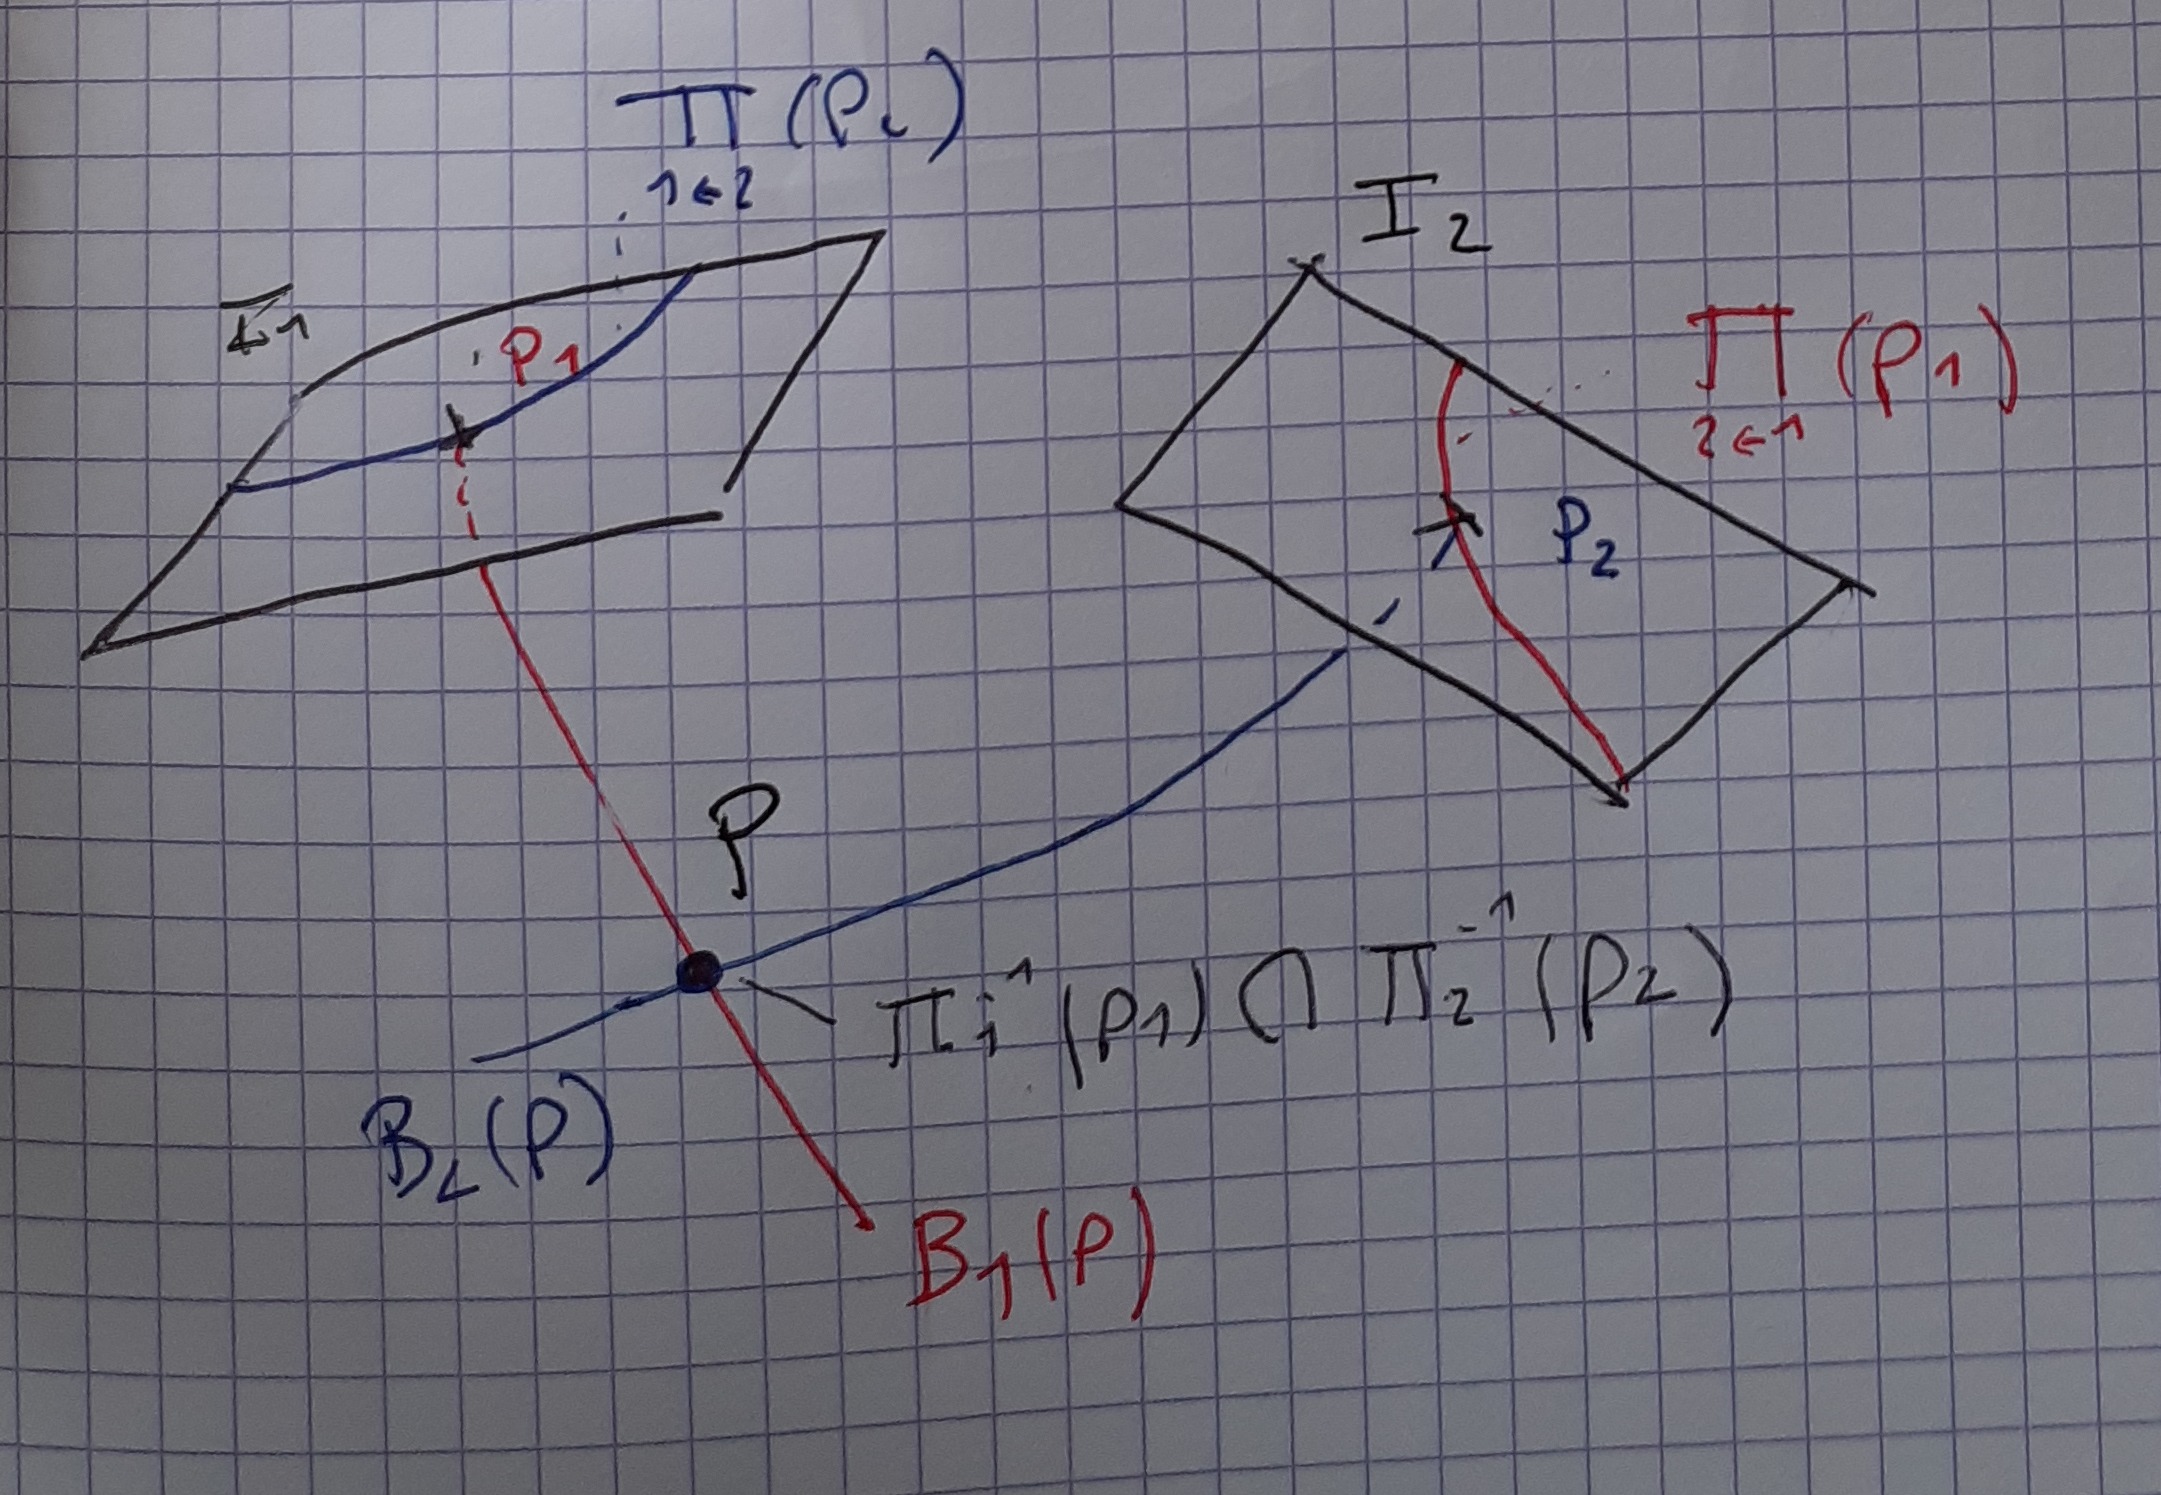 Π (P₂)
1←2
I₂
I1
P1
Π (P1)
2←1
P₂
P
Π₁⁻¹ (P1) ∩ Π₂⁻¹ (P2)
B₂(P)
B₁(P)